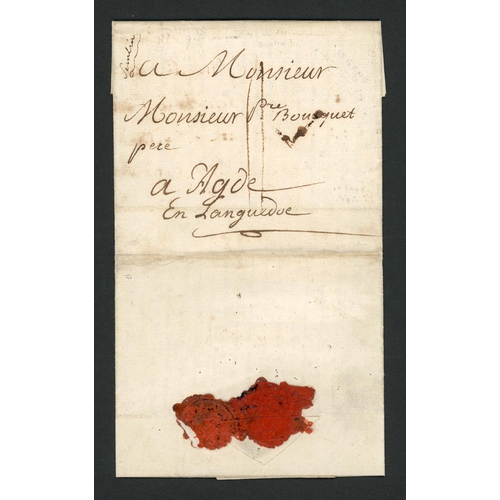 a Monsieur
Monsieur Pre Bousquet
pere
a Agde
En Languedoc